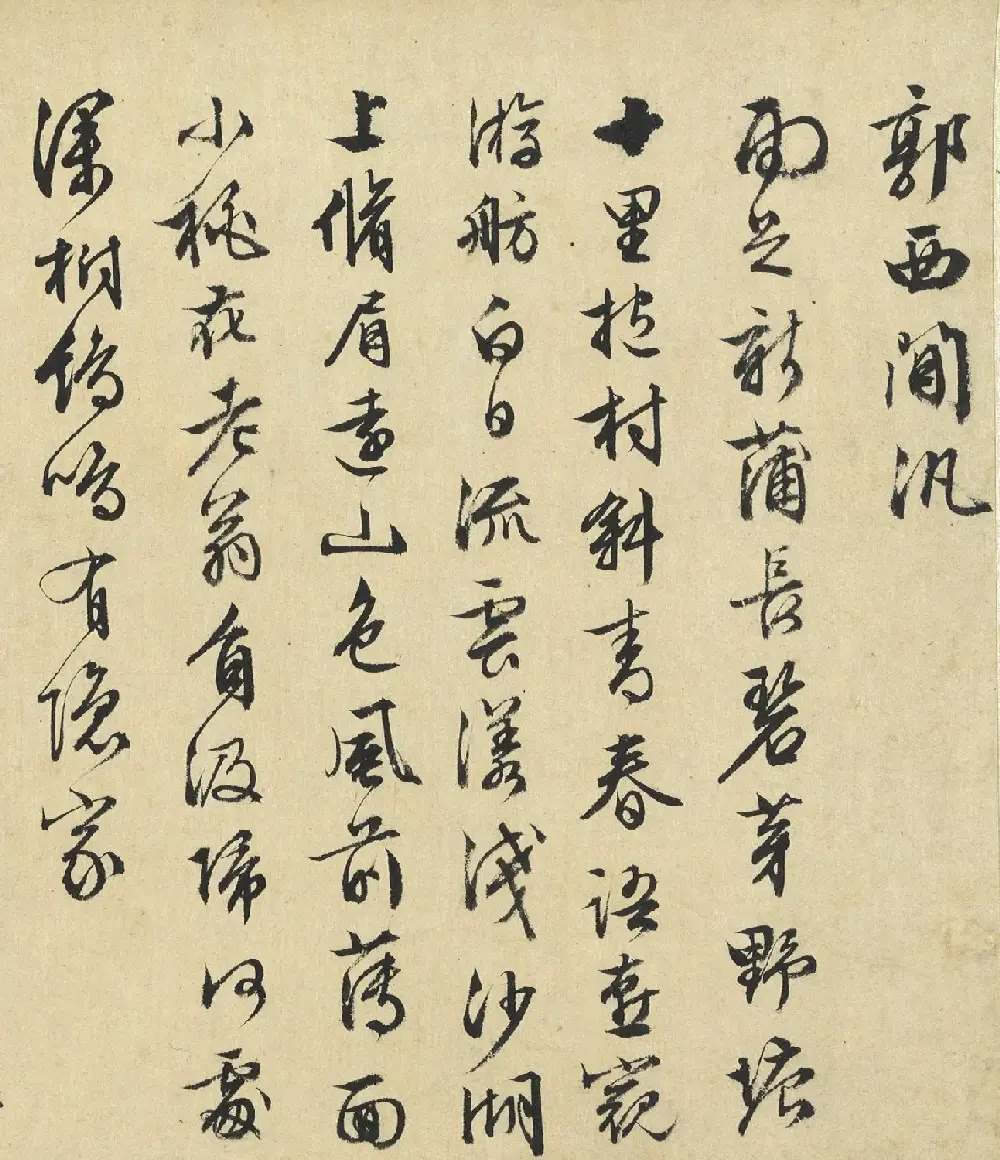 郭西閒汎
雨足新蒲長碧芽野塘
十里抱村斜青春語燕窺
游舫白日流雲漾淺沙湖
上脩眉遠山色風前薄面
小桃花老翁負汲歸何處
深樹鷄鳴有隱家